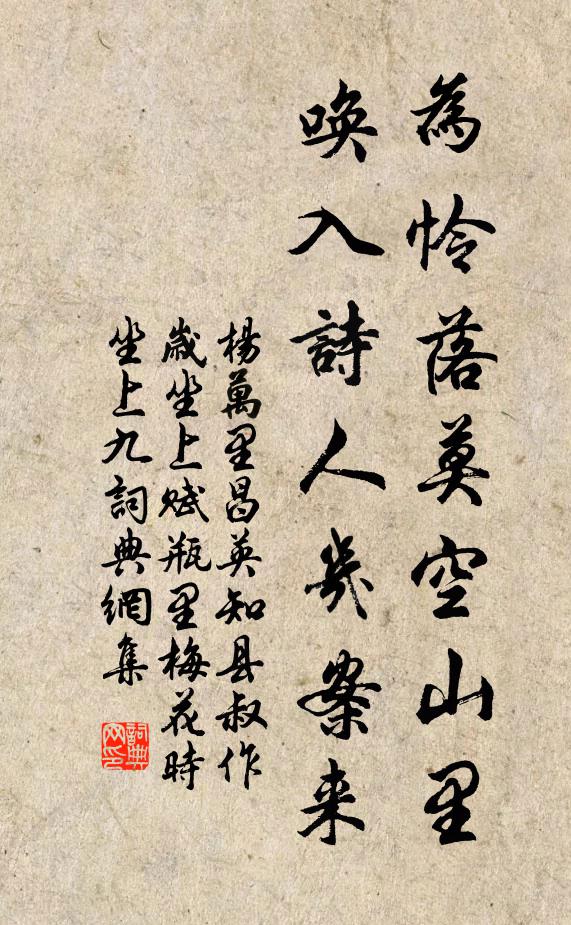 為怜落莫空山里
喚入詩人幾案来
楊萬里昌英知县叔作
歲坐上賦瓶里梅花時
坐上九詞典網集
詞典
网印